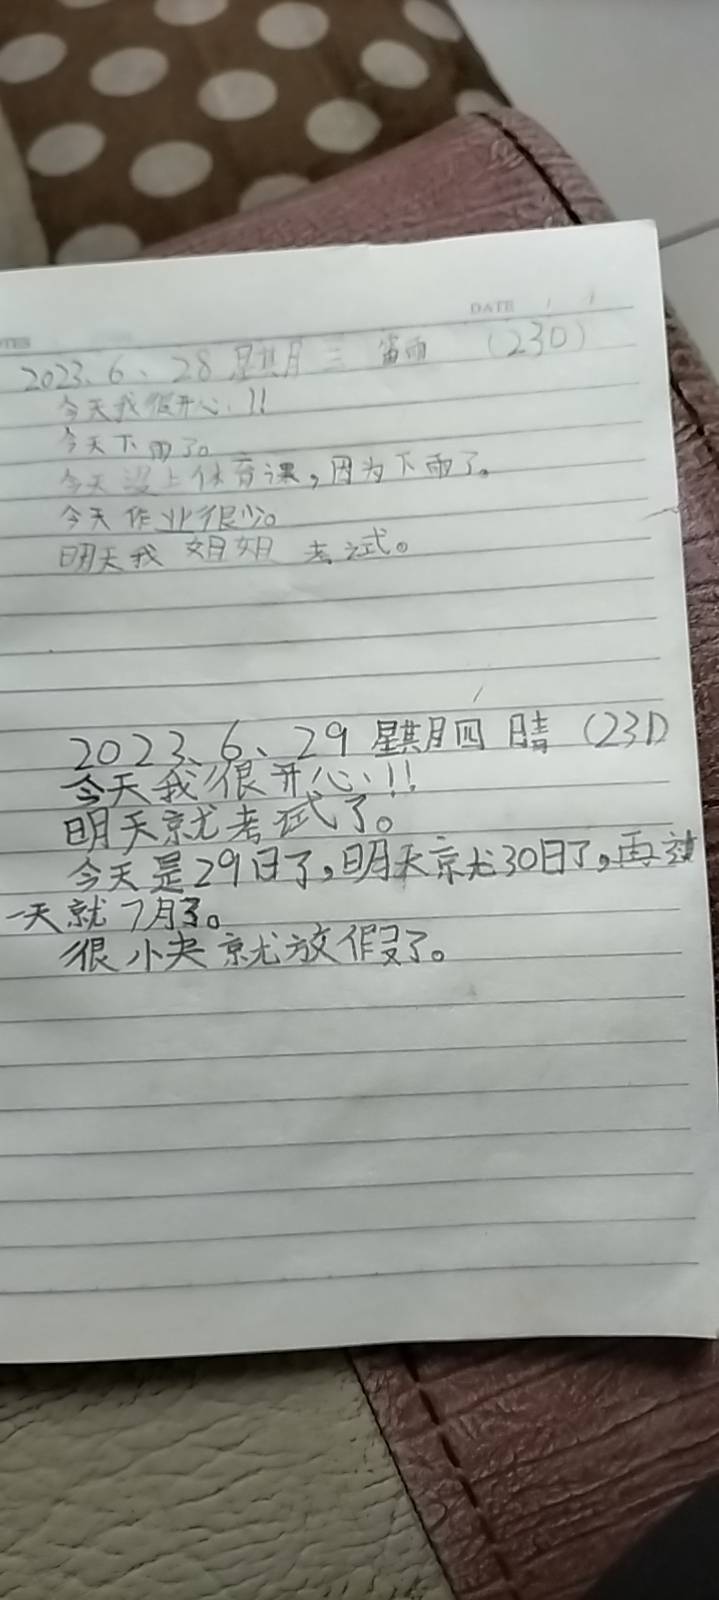 DATE / /
2023、6、28 星期三 雷雨 (230)
今天我很开心!!
今天下雨了。
今天没上体育课，因为下雨了。
今天作业很少。
明天我姐姐考试。
2023、6、29 星期四 晴 (231)
今天我很开心!!
明天就考试了。
今天是29日了，明天就30日了，再过
一天就7月了。
很小夬就放假了。